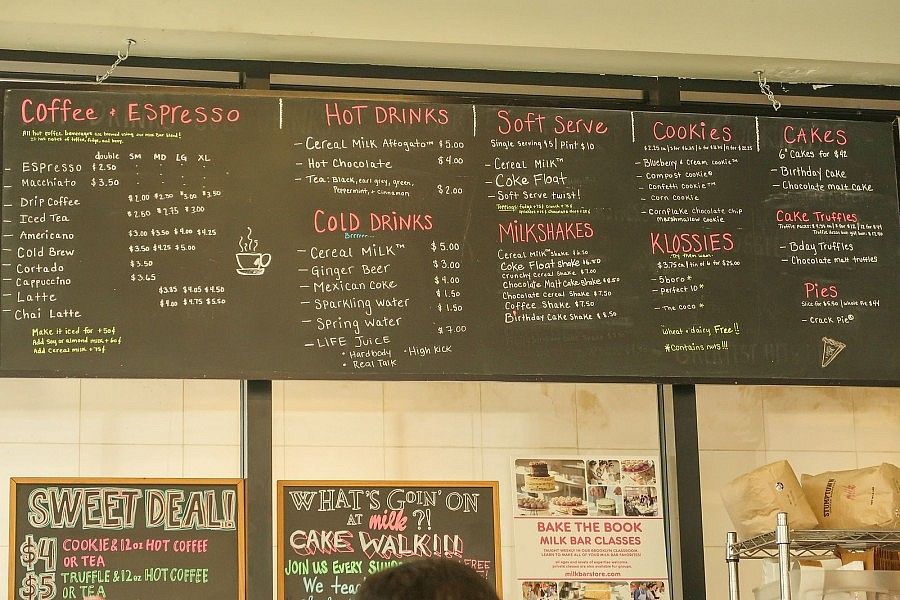 Coffee + Espresso
All hot coffee beverages are brewed using our Milk Bar blend!
It has notes of toffee, fudge, and berry.
double SM MD LG XL
Espresso $2.50
Macchiato $3.50
Drip Coffee $2.00 $2.50 $3.00 $3.50
Iced Tea $2.60 $2.75 $3.00
Americano $3.00 $3.50 $4.00 $4.25
Cold Brew $3.50 $4.25 $5.00
Cortado $3.50
Cappuccino $3.65
Latte $3.85 $4.05 $4.50
Chai Latte $4.00 $4.75 $5.50
Make it iced for +50¢
Add Soy or almond milk +60¢
Add Cereal milk +75¢
HOT DRINKS
- Cereal Milk Affogato™ $5.00
- Hot Chocolate $4.00
- Tea: Black, earl grey, green,
Peppermint, + cinnamon $2.00
COLD DRINKS
Brrrrr...
- Cereal Milk™ $5.00
- Ginger Beer $3.00
- Mexican Coke $4.00
- Sparkling Water $1.50
- Spring Water $1.50
- LIFE JUICE $7.00
• Hardbody • High Kick
• Real Talk
Soft Serve
Single Serving $5 | Pint $10
- Cereal Milk™
- Coke Float
- Soft Serve twist!
MILKSHAKES
Cereal Milk™ Shake
Coke Float Shake
Crunchy Cereal Shake $7.00
Chocolate Malt Cake Shake $8.50
Chocolate Cereal Shake $7.50
Coffee Shake $7.50
Birthday Cake Shake $8.50
Cookies
- Blueberry & Cream cookie™
- Compost cookie®
- Confetti Cookie™
- Corn Cookie
- Cornflake chocolate chip
Marshmallow cookie
KLOSSIES
Try them warm!
$3.75 ea / tin of 6 for $25.00
- 5boro*
- Perfect 10*
- The Coco*
Wheat + dairy Free!!
*Contains nuts!!!
CAKES
6" Cakes for $42
- Birthday Cake
- Chocolate malt Cake
Cake Truffles
- Bday Truffles
- Chocolate malt truffles
Pies
- Crack Pie®
SWEET DEAL!
$4 COOKIE & 12oz HOT COFFEE
OR TEA
$5 TRUFFLE & 12oz HOT COFFEE
OR TEA
WHAT'S GOIN' ON
AT milk ?!
CAKE WALK!!!
JOIN US EVERY
FREE
We
BAKE THE BOOK
MILK BAR CLASSES
TAUGHT WEEKLY IN OUR BROOKLYN CLASSROOM.
LEARN TO MAKE ALL OF YOUR MILK BAR FAVORITES!
all ages and levels of expertise welcome.
private classes are also available for groups.
milkbarstore.com
STUMPTOWN
milk